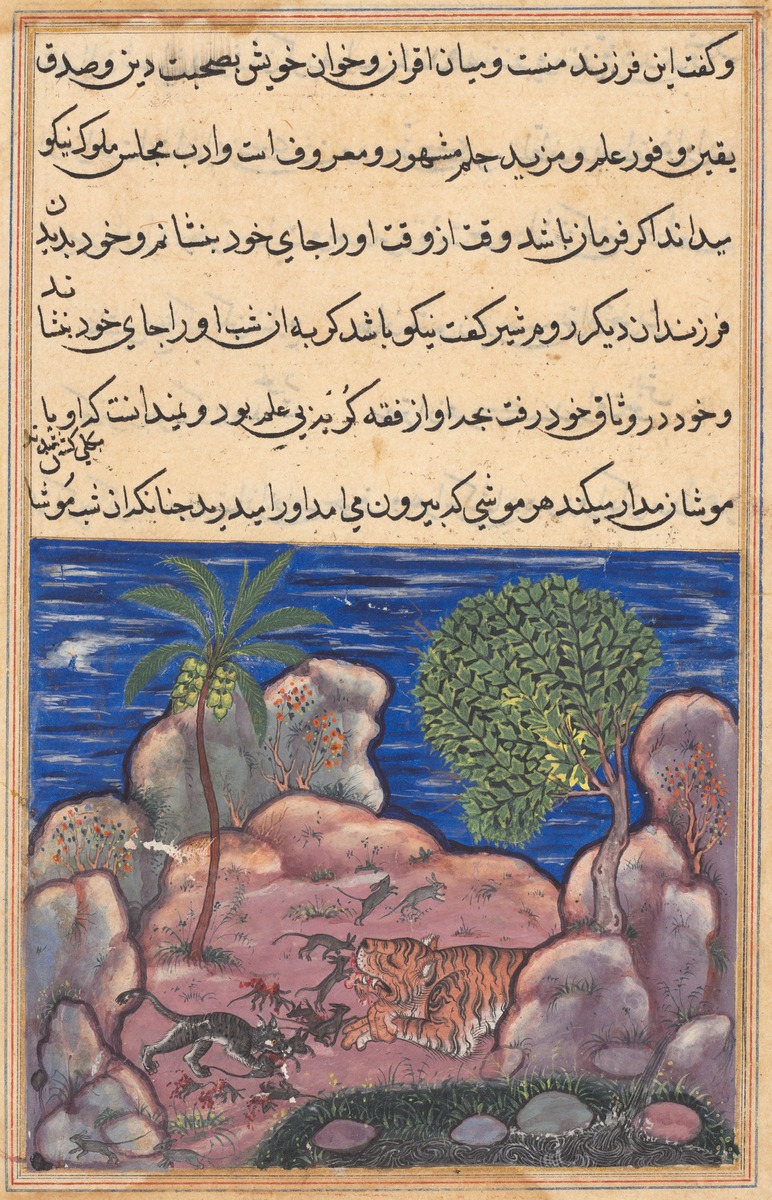 و کفت این فرزند منست و میان اقران و خوان خویش بصحبت دین و صدق
یقین و فور علم و مزید حلم مشهور و معروف است و ادب مجلس ملوک نیکو
میداند اکر فرمان باشد وقت از وقت او را جای خود بنشانم و خود بدیدن
فرزندان دیکر روم شیر کفت نیکو باشد کربه ان شب او را جای خود بنشاند
و خود در وثاق خود رفت بچه او از فقه کُربُزیی علم بود و نمیدانست که او با
موشان مدار میکند هر موشی که بیرون می امد او را میدرید چنانکه ان شب مُوشان
بکلی کشته شدند